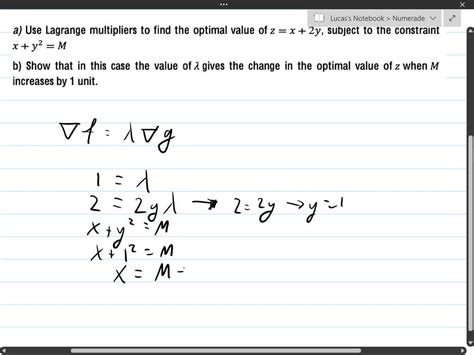 Lucas's Notebook > Numerade
a) Use Lagrange multipliers to find the optimal value of z = x + 2y, subject to the constraint
x + y² = M
b) Show that in this case the value of λ gives the change in the optimal value of z when M
increases by 1 unit.
∇f = λ∇g
1 = λ
2 = 2yλ → 2=2y → y=1
x+y²=M
x+1²=M
x = M -